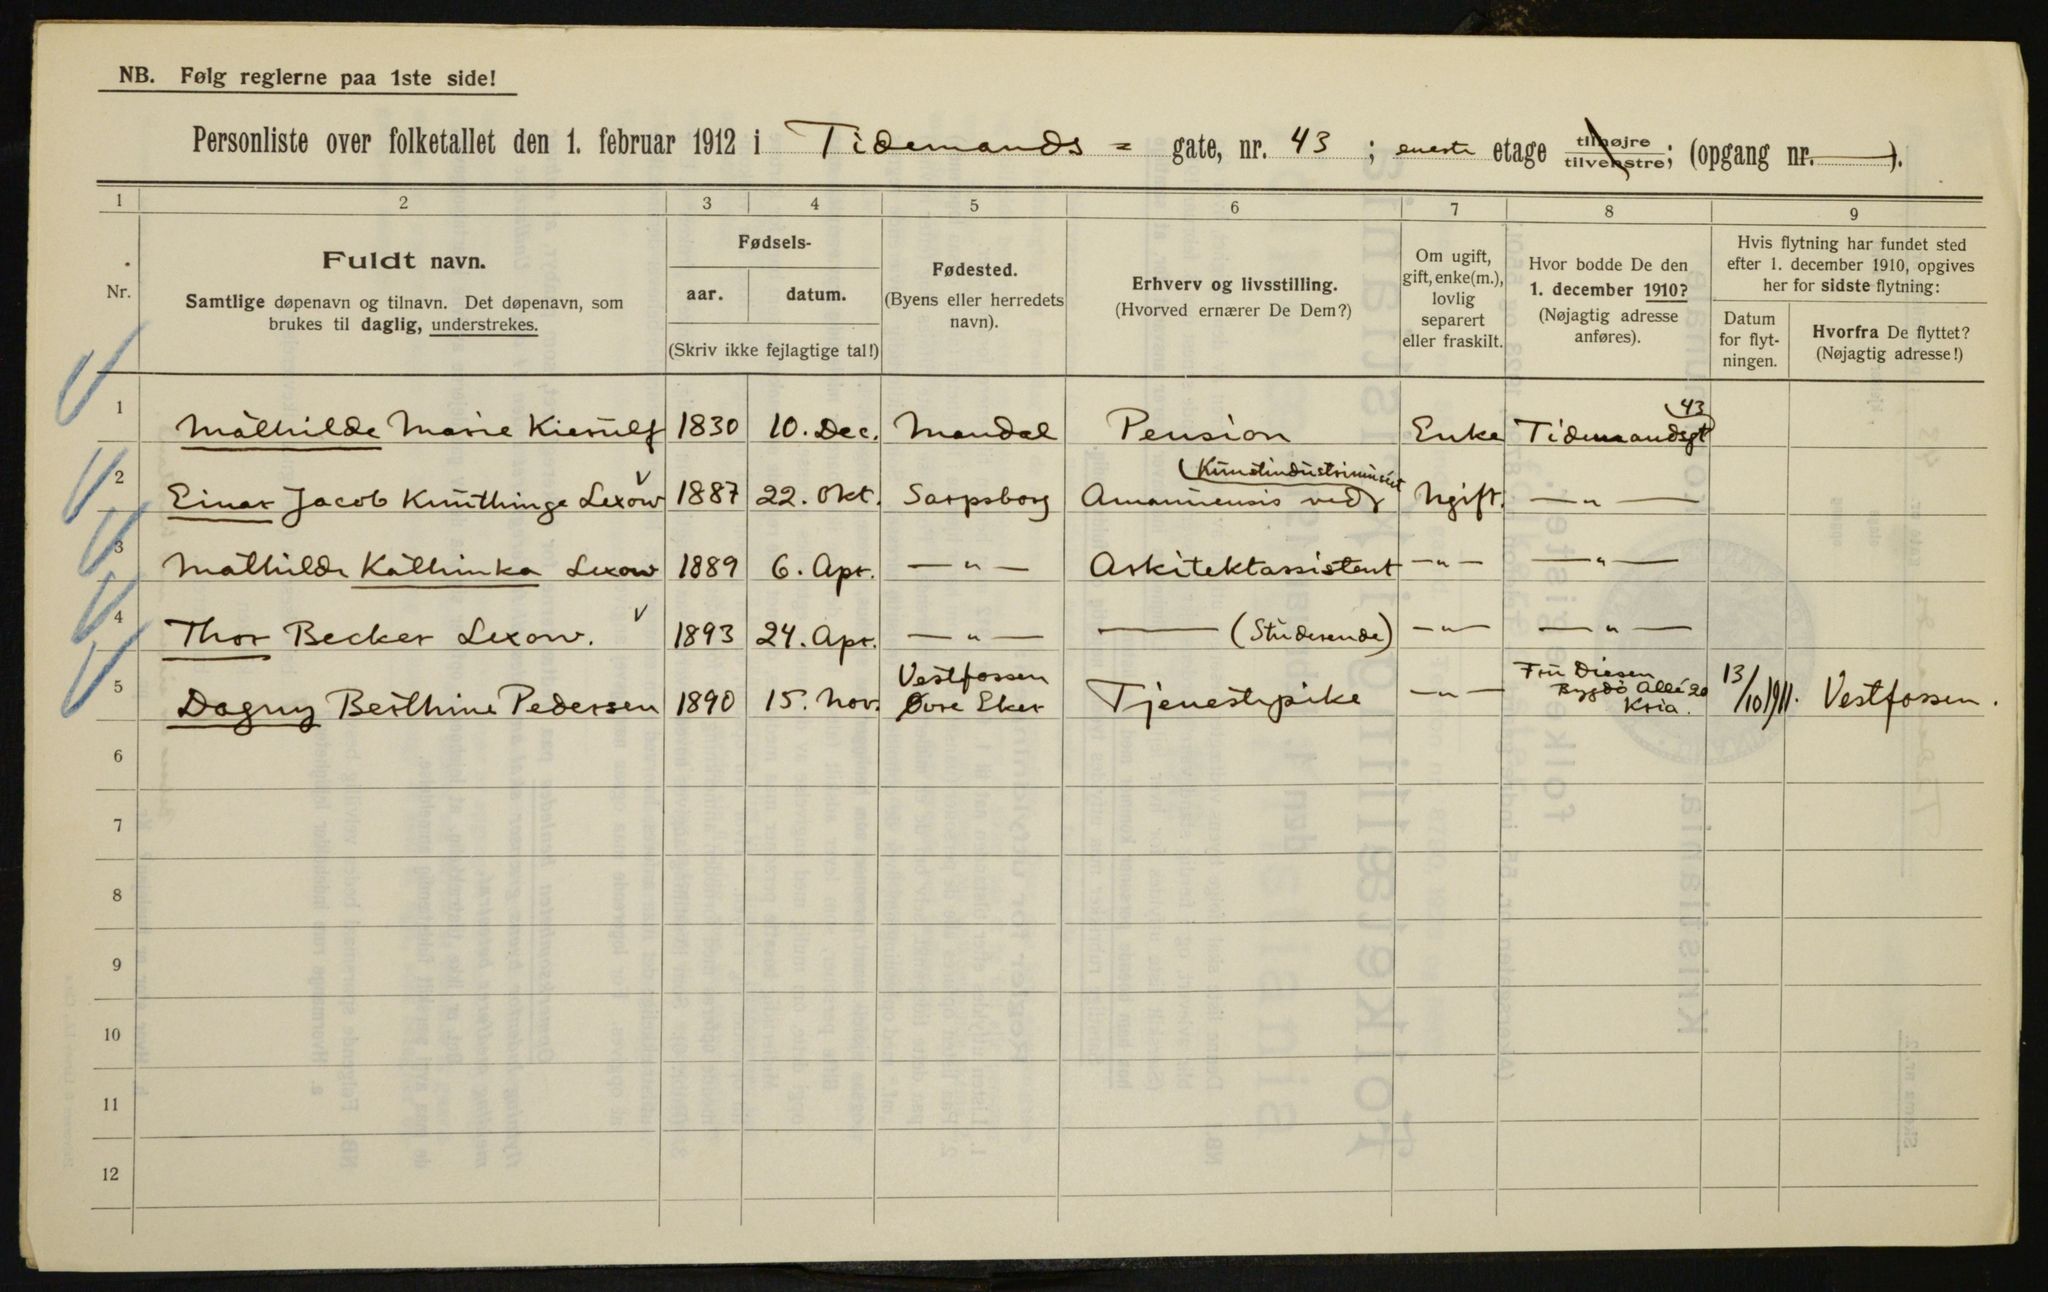 NB. Følg reglerne paa 1ste side!
Personliste over folketallet den 1. februar 1912 i Tidemands = gate, nr. 43 ; eneste etage tilhøjre tilvenstre; (opgang nr. —).
1 2 3 4 5 6 7 8 9
Nr.
Fuldt navn.
Samtlige døpenavn og tilnavn. Det døpenavn, som
brukes til daglig, understrekes.
Fødsels-
aar. datum.
(Skriv ikke fejlagtige tal!)
Fødested.
(Byens eller herredets
navn).
Erhverv og livsstilling.
(Hvorved ernærer De Dem?)
Om ugift,
gift, enke(m.),
lovlig
separert
eller fraskilt.
Hvor bodde De den
1. december 1910?
(Nøjagtig adresse
anføres).
Hvis flytning har fundet sted
efter 1. december 1910, opgives
her for sidste flytning:
Datum
for flyt-
ningen.
Hvorfra De flyttet?
(Nøjagtig adresse!)
1 Mathilde Marie Kierulf 1830 10. Dec. Mandal Pension Enke Tidemandsgt 43
2 Einar Jacob Knuthinge Lexow 1887 22. Okt. Sarpsborg Amanuensis ved Kunstindustrimuséet Ugift. — „ —
3 Mathilde Kathinka Lexow 1889 6. Apr. — „ — Arkitektassistent — „ — — „ —
4 Thor Becker Lexow. 1893 24. Apr. — „ — — (Studerende) — „ — — „ —
5 Dagny Berthine Pedersen 1890 15. Nov. Vestfossen Øvre Eker Tjenestepike — „ — Fru Diesen Bygdö Allé 20 Kria. 13/10 1911. Vestfossen.
6
7
8
9
10
11
12